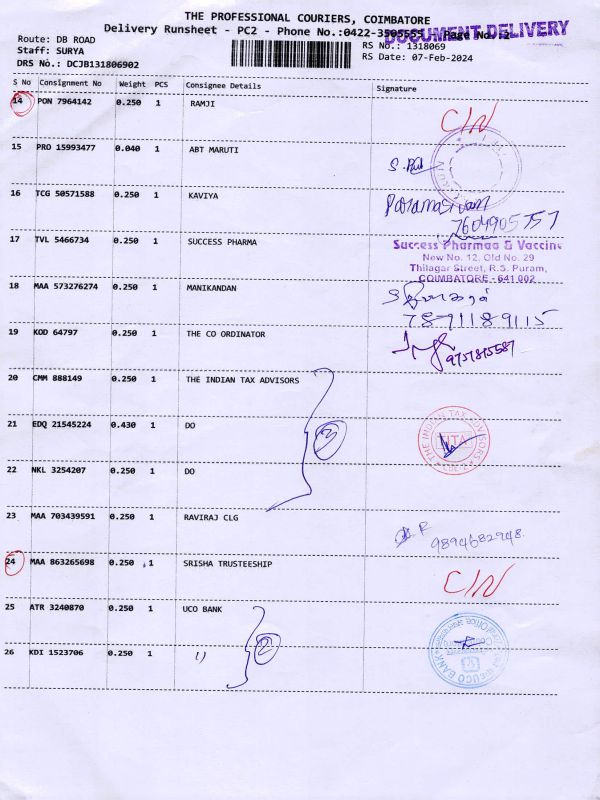 THE PROFESSIONAL COURIERS, COIMBATORE
Delivery Runsheet - PC2 - Phone No.:0422-3505555 Page No.:2
DOCUMENT DELIVERY
Route: DB ROAD
Staff: SURYA
DRS No.: DCJB131806902
RS No.: 1318069
RS Date: 07-Feb-2024
S No Consignment No Weight PCS Consignee Details Signature
14 PON 7964142 0.250 1 RAMJI C/N
15 PRO 15993477 0.040 1 ABT MARUTI
16 TCG 50571588 0.250 1 KAVIYA Paramasivam
7604905757
17 TVL 5466734 0.250 1 SUCCESS PHARMA Success Pharmaa & Vaccine
New No. 12, Old No. 29
Thilagar Street, R.S. Puram,
COIMBATORE - 641 002
18 MAA 573276274 0.250 1 MANIKANDAN
7871189115
19 KOD 64797 0.250 1 THE CO ORDINATOR
20 CMM 888149 0.250 1 THE INDIAN TAX ADVISORS
21 EDQ 21545224 0.430 1 DO 3 THE INDIAN TAX ADVISORS
ITA
22 NKL 3254207 0.250 1 DO
23 MAA 703439591 0.250 1 RAVIRAJ CLG
9894682948
24 MAA 863265698 0.250 1 SRISHA TRUSTEESHIP C/N
25 ATR 3240870 0.250 1 UCO BANK
26 KDI 1523706 0.250 1 1) 2 UCO BANK